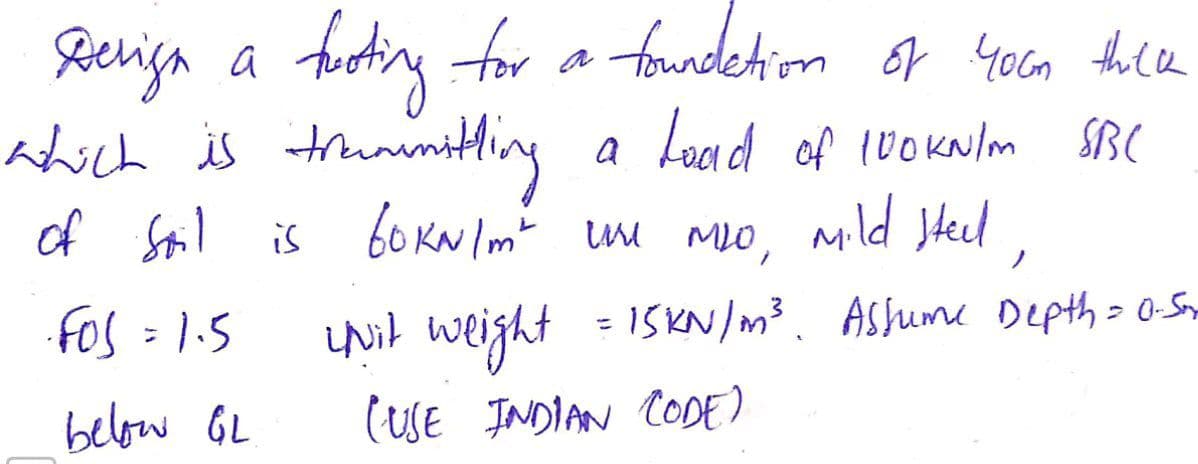 Design a footing for a foundation of 40cm thick
which is transmitting a Load of 100KN/m SBC
of Soil is 60KN/m² use M20, Mild Steel,
FOS = 1.5 UNit weight = 15KN/m³. Assume Depth = 0.5m
below GL (USE INDIAN CODE)